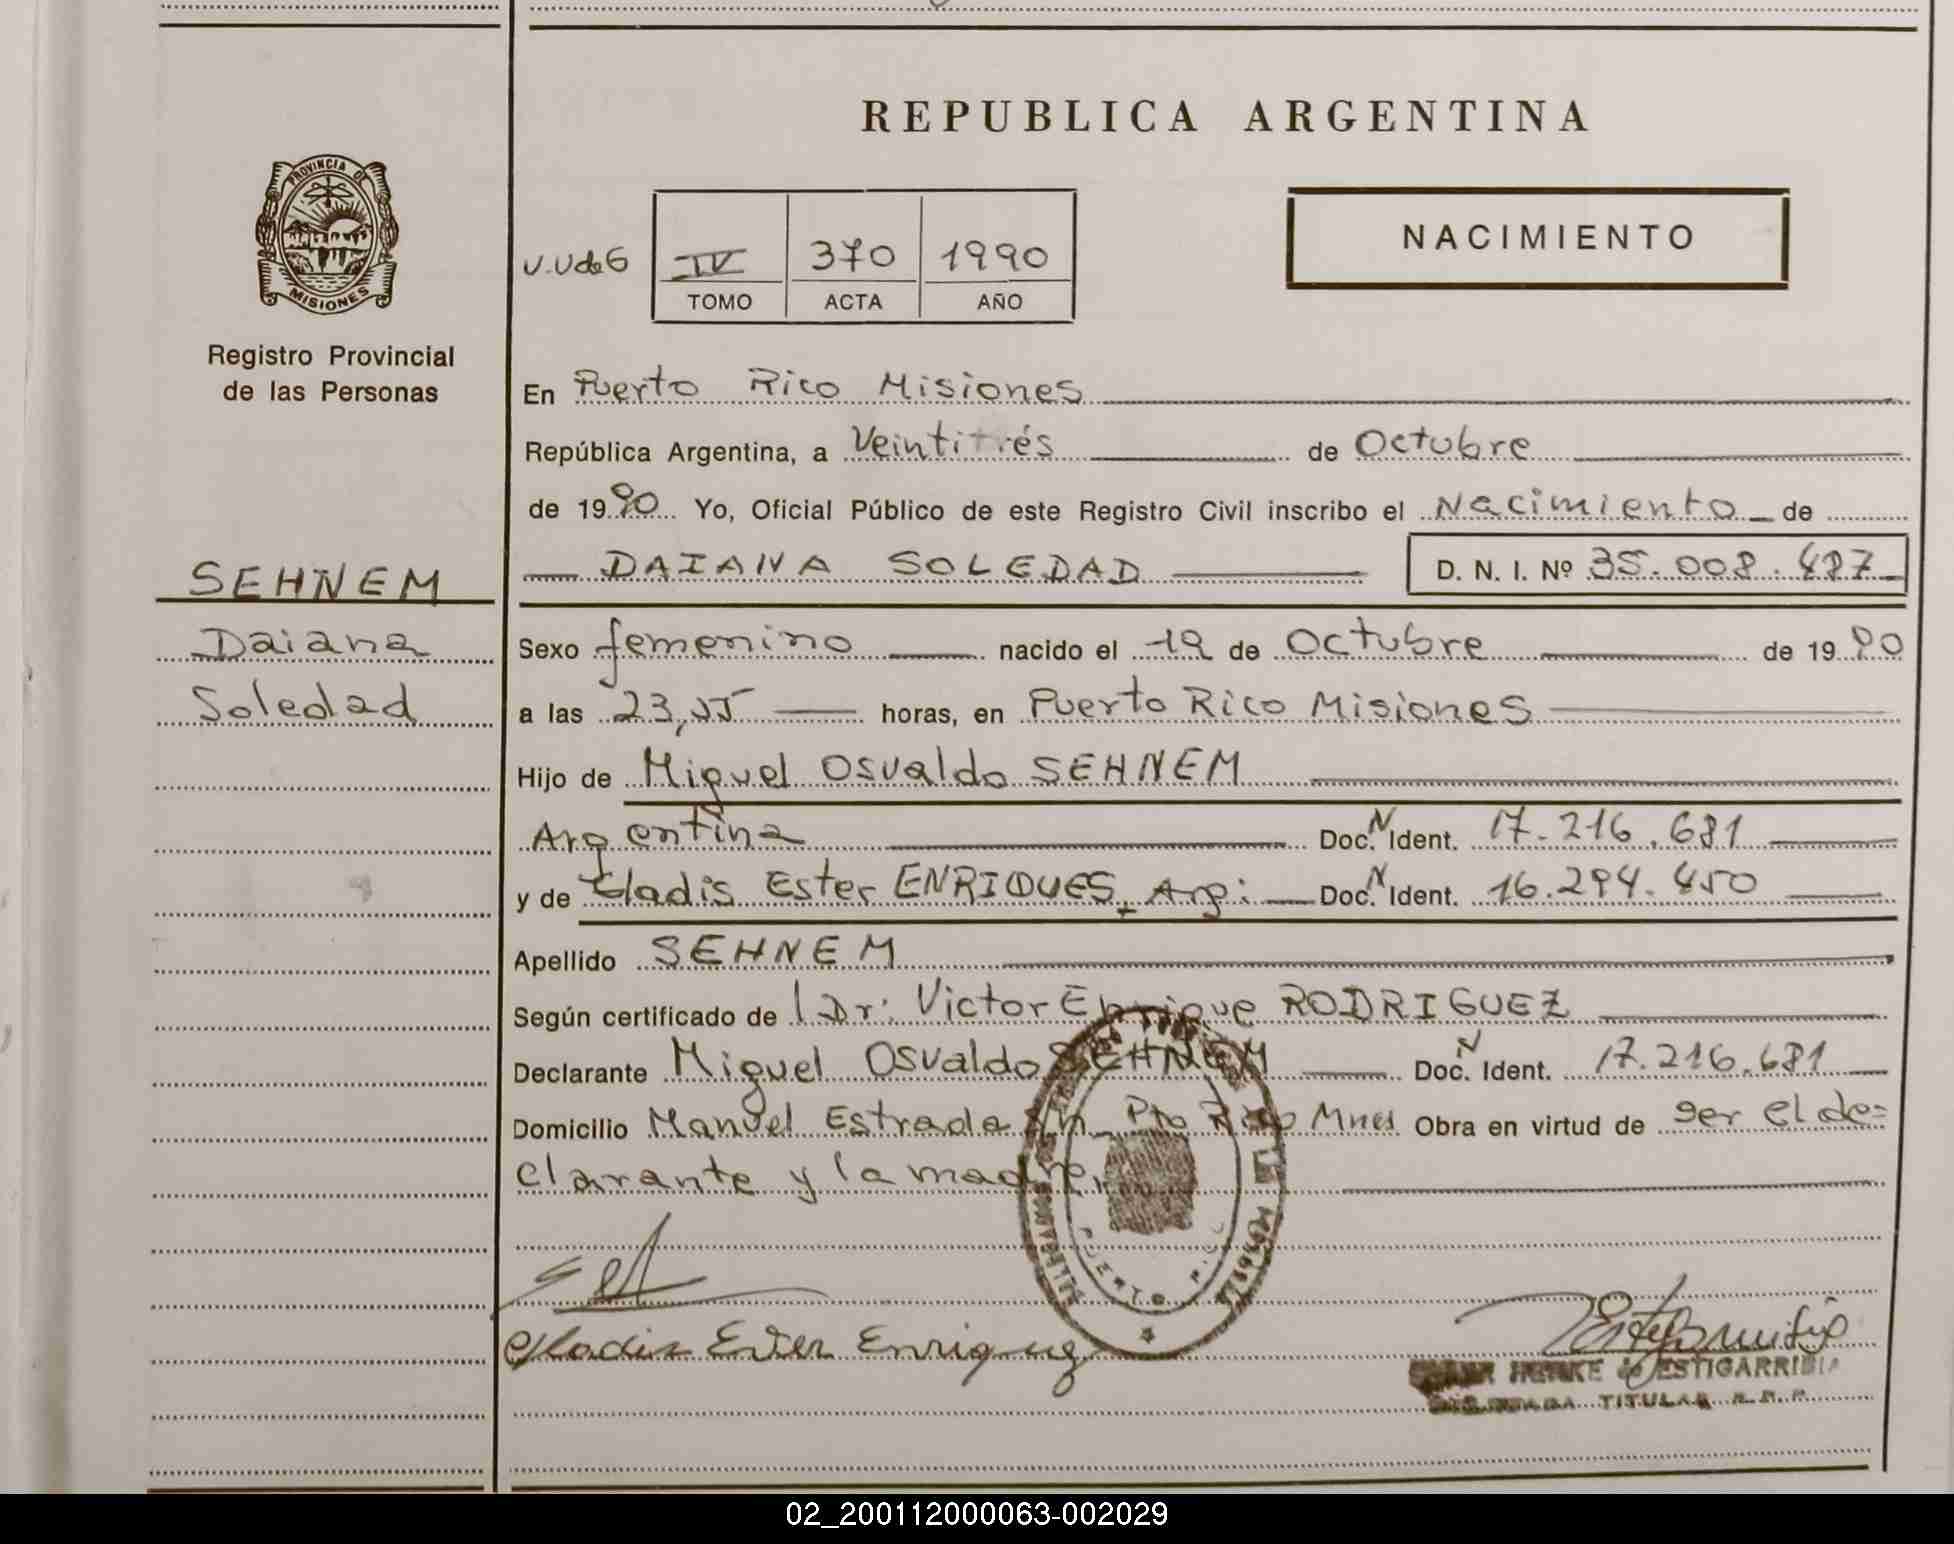 REPUBLICA ARGENTINA
PROVINCIA DE
MISIONES
Registro Provincial
de las Personas
NACIMIENTO
IV 370 1990
TOMO ACTA AÑO
En Puerto Rico Misiones
República Argentina, a Veintitrés de Octubre
de 1990 Yo, Oficial Público de este Registro Civil inscribo el Nacimiento de
DAIANA SOLEDAD D. N. I. Nº 35.008.487
SEHNEM
Daiana
Soledad
Sexo femenino nacido el 19 de Octubre de 1990
a las 23,55 horas, en Puerto Rico Misiones
Hijo de Miguel Osvaldo SEHNEM
Argentina Doc. N Ident. 17.216.681
y de Gladis Ester ENRIQUES_Arg: Doc. N Ident. 16.294.450
Apellido SEHNEM
Según certificado de l Dr: Victor Enrique RODRIGUEZ
Declarante Miguel Osvaldo SEHNEM Doc. N Ident. 17.216.681
Domicilio Manuel Estrada Pto Rico Mnes Obra en virtud de ser el de=
clarante y la madre.
PUERTO RICO
Gladis Ester Enriquez
HENKE de ESTIGARRIBIA
TITULAR R.P.P.
02_200112000063-002029